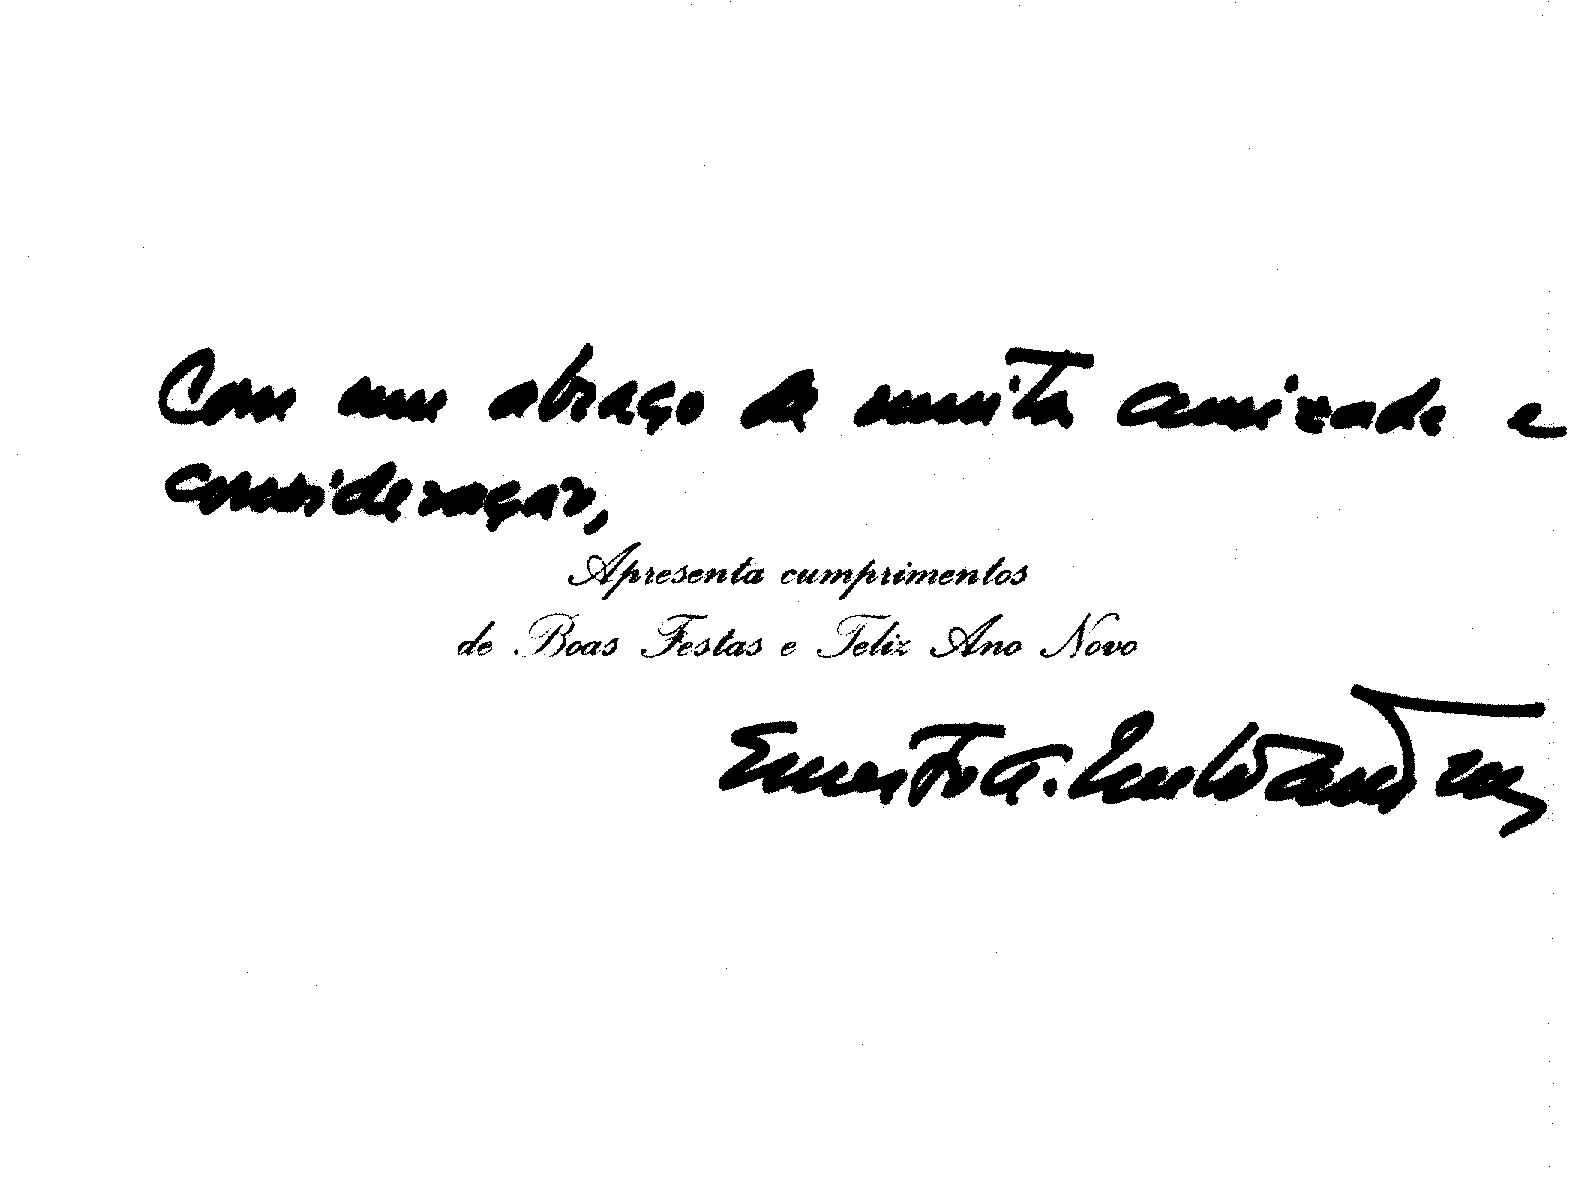 Com um abraço de muita amizade e
consideração,
Apresenta cumprimentos
de Boas Festas e Feliz Ano Novo